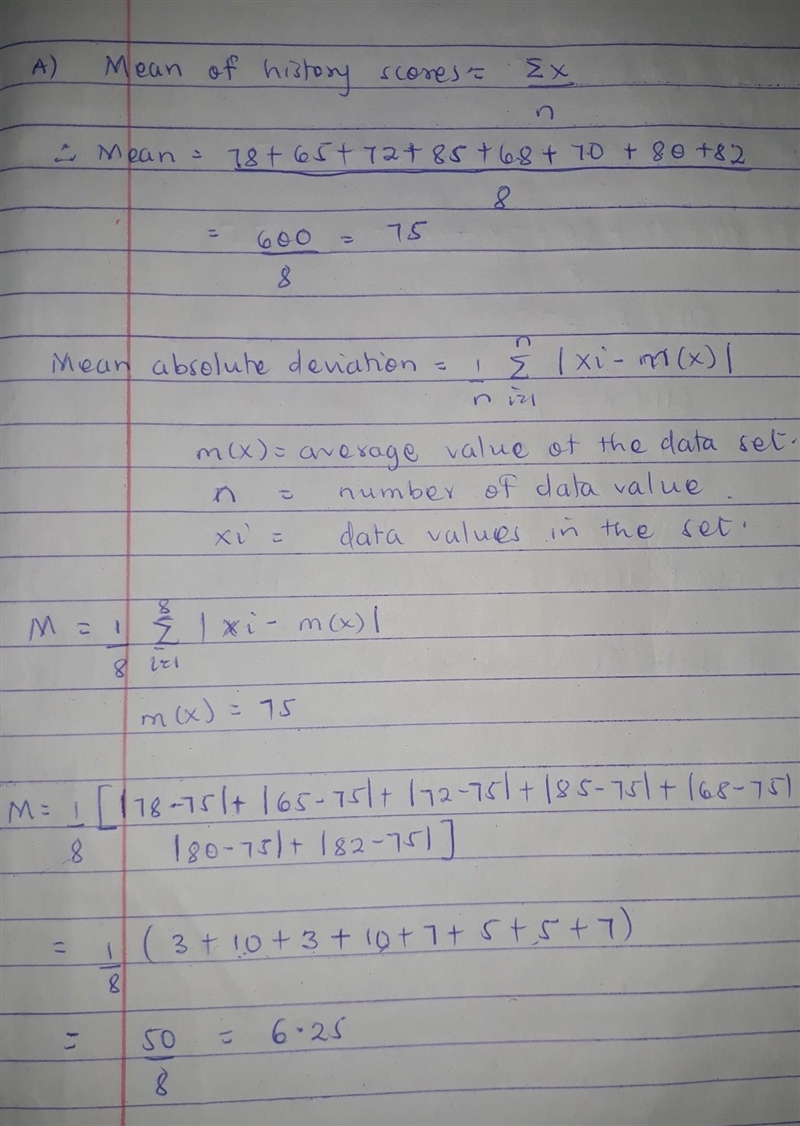 A) Mean of history scores = Σx
n
∴ Mean = 78+65+72+85+68+70+80+82
8
= 600 = 75
8
Mean absolute deviation = 1 n Σ i=1 |xi - m(x)|
n
m(x) = average value of the data set.
n = number of data value.
xi = data values in the set.
M = 1 8 Σ i=1 |xi - m(x)|
8
m(x) = 75
M = 1 [|78-75|+ |65-75|+ |72-75|+ |85-75|+ |68-75|
8 |80-75|+ |82-75|]
= 1 (3+10+3+10+7+5+5+7)
8
= 50 = 6.25
8